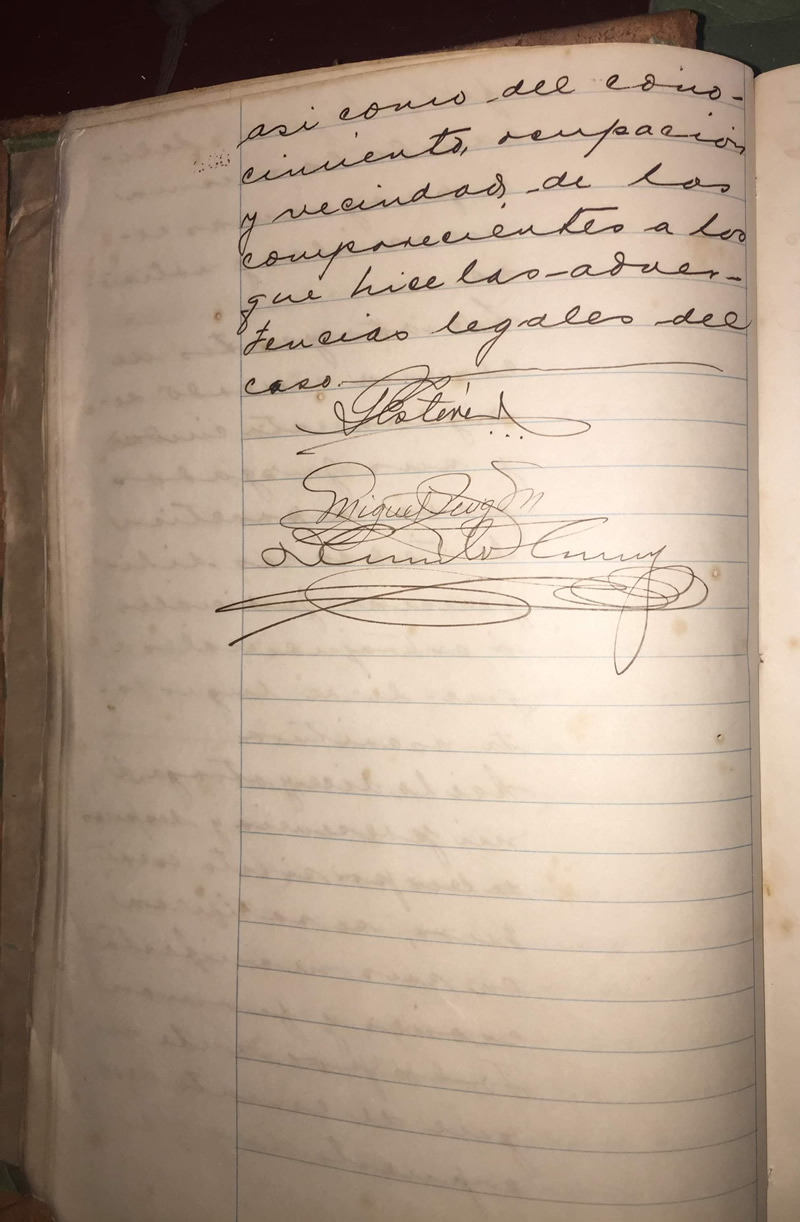 asi como del cono-
cimiento, ocupación
y vecindad de los
comparecientes a los
que hice las adver-
tencias legales del
caso.
Miguel